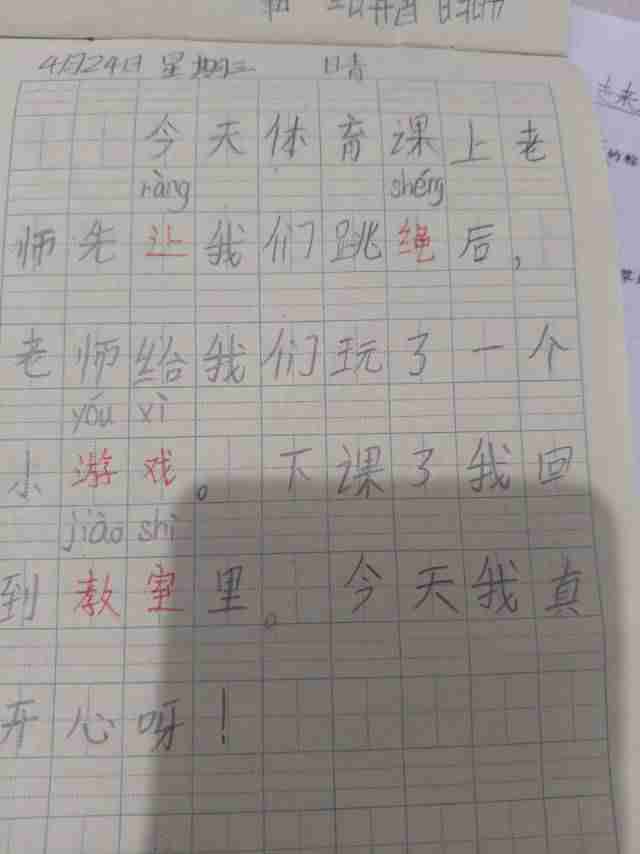 4月24日 星期三 晴
今天体育课上老
ràng shéng
师先让我们跳绳后，
老师给我们玩了一个
yóu xì
小游戏。下课了我回
jiào shì
到教室里。今天我真
开心呀！